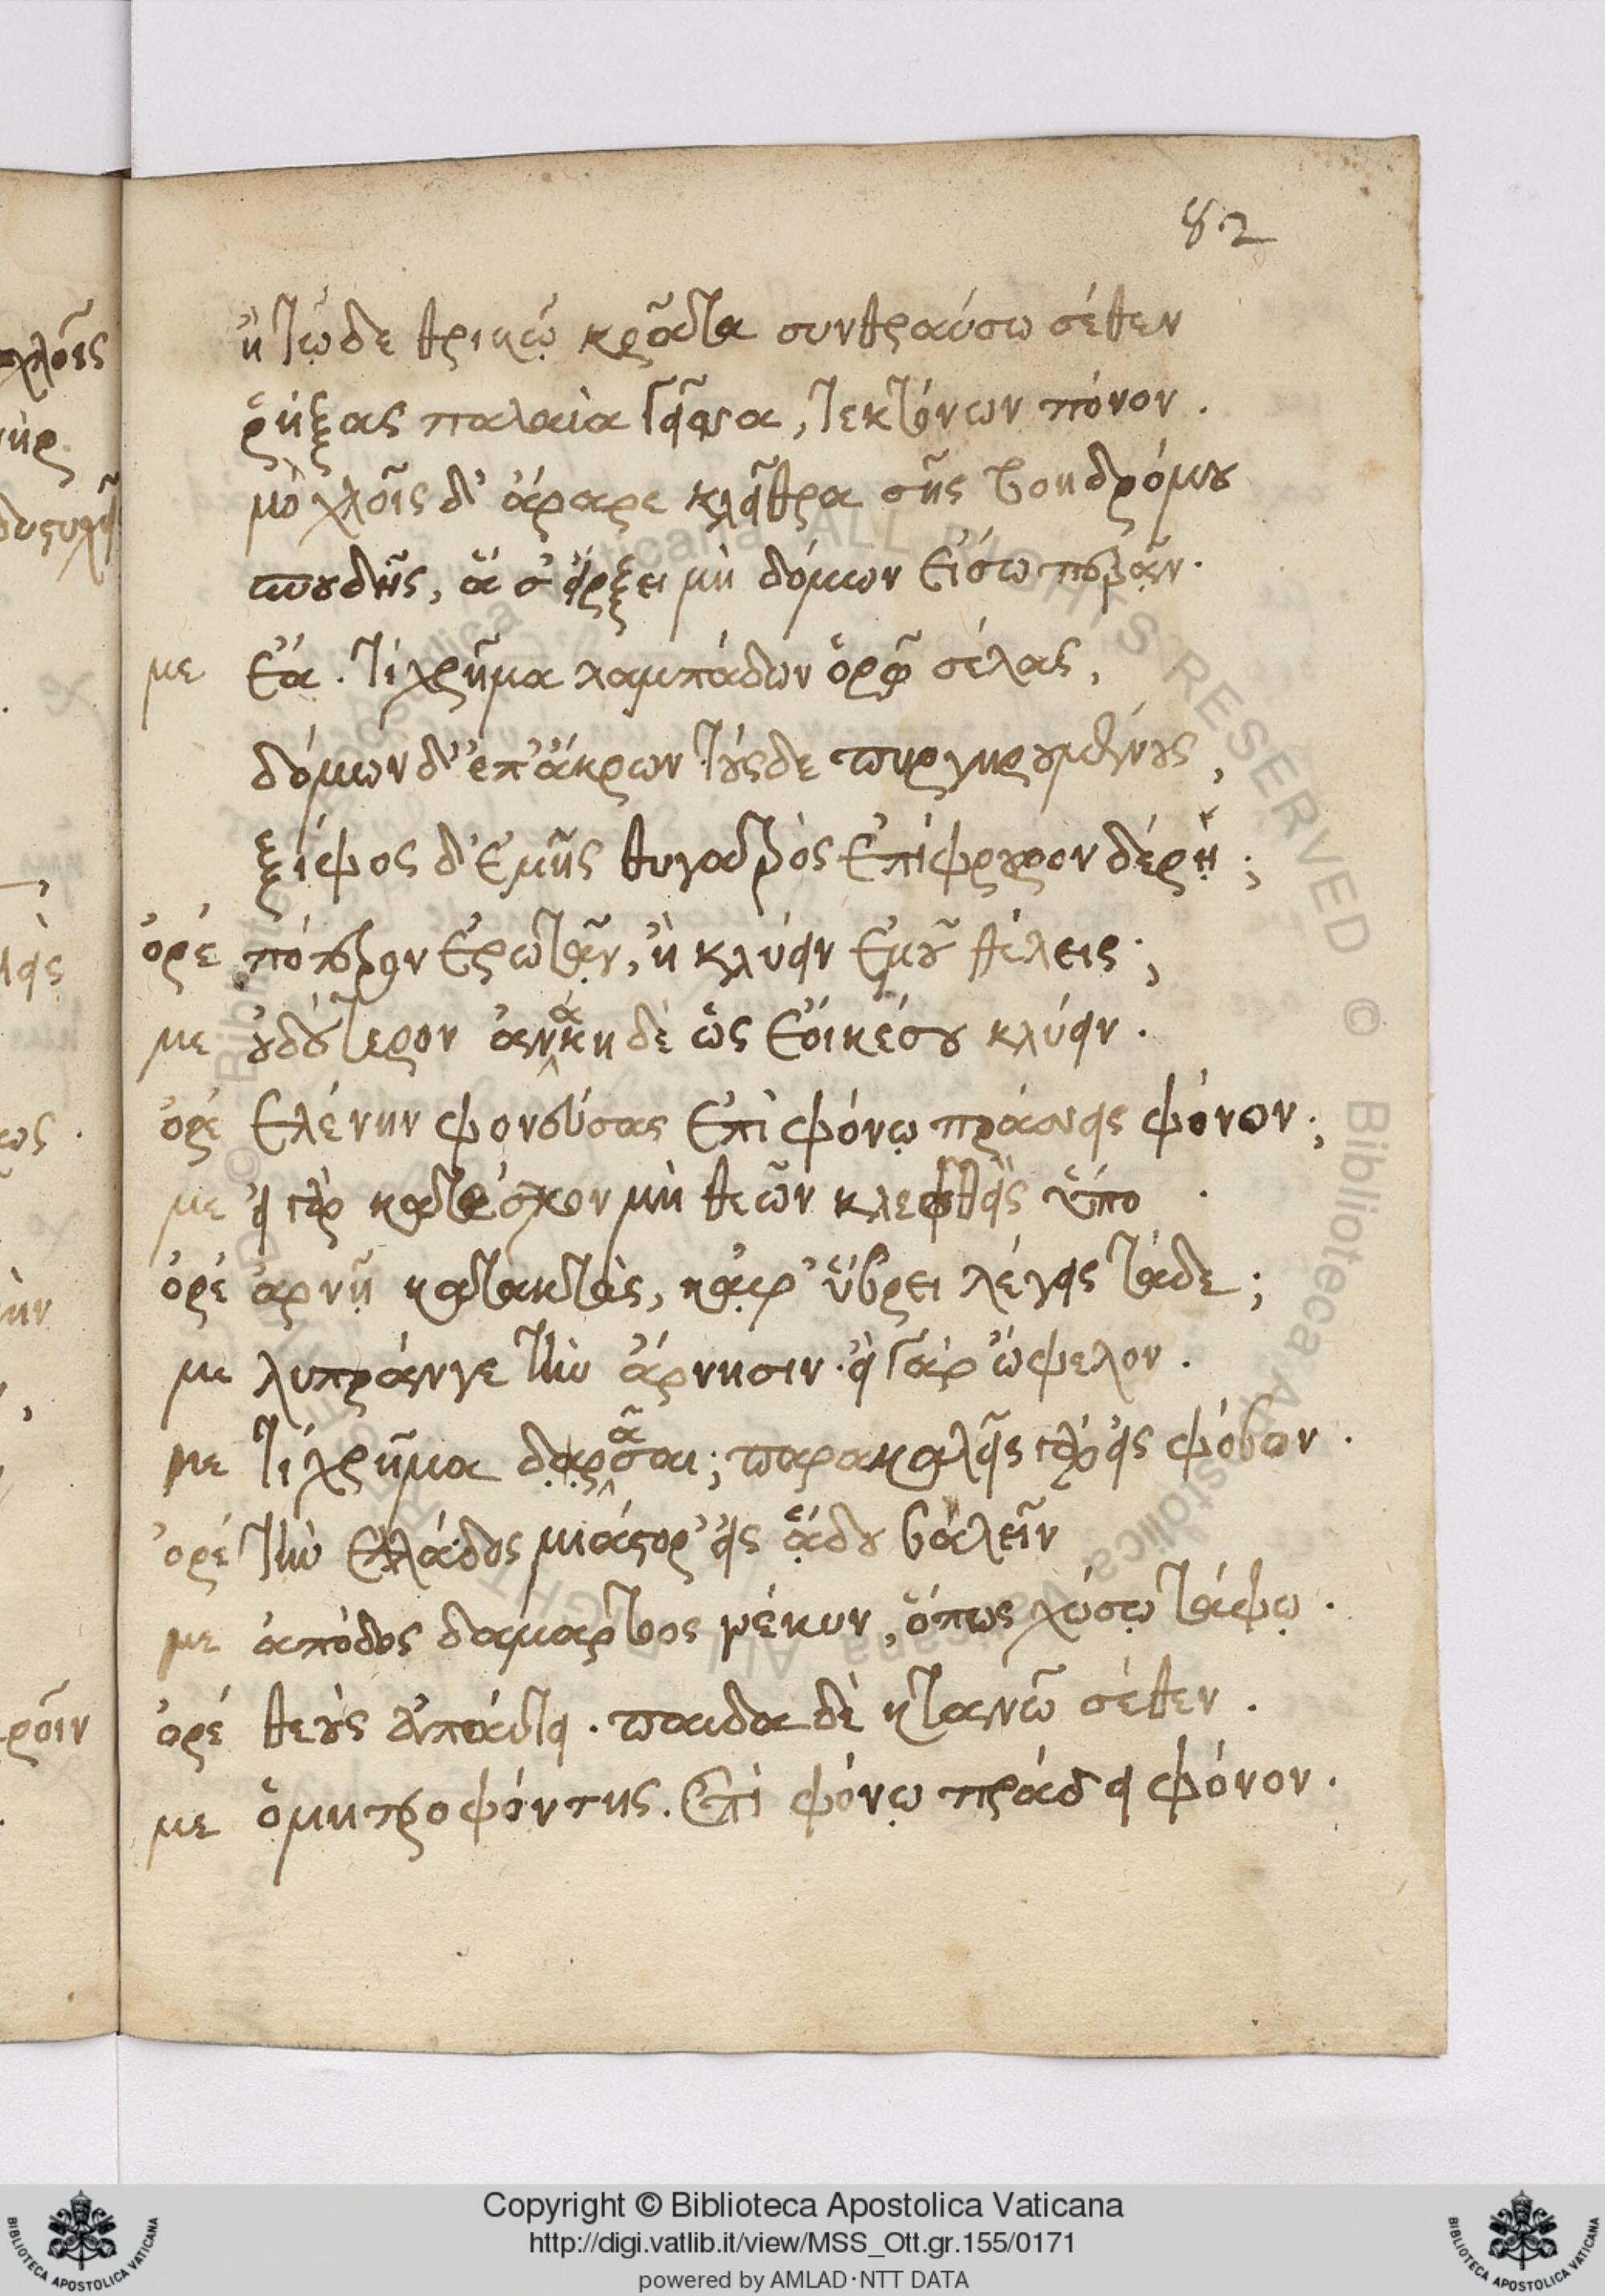 82
ἢ τῷδε θριγκῷ κρᾶτα συνθραύσω σέθεν
ῥήξας παλαιὰ γεῖσα, τεκτόνων πόνον.
μοχλοῖς δ' ἄραρε κλεῖθρα σῆς βοηδρόμου
σπουδῆς, ἅ σ' εἴρξει μὴ δόμων εἴσω περᾶν.
με ἔα. τί χρῆμα λαμπάδων ὁρῶ σέλας,
δόμων δ' ἐπ' ἄκρων τούσδε πυργηρουμένους,
ξίφος δ' ἐμῆς θυγατρὸς ἐπίφρουρον δέρῃ;
ὀρέ πότερον ἐρωτᾶν, ἢ κλύειν ἐμοῦ θέλεις;
με οὐδέτερον ἀνάγκη δὲ ὡς ἔοικέ σου κλύειν.
ὀρέ Ἑλένην φονεύσας ἐπὶ φόνῳ πράσσεις φόνον;
με εἰ γὰρ κατέσχον μὴ θεῶν κλεφθεὶς ὕπο.
ὀρέ ἀρνῇ κατακτὰς, κἀφ' ὕβρει λέγεις τάδε;
με λυπράν γε τὴν ἄρνησιν. εἰ γὰρ ὤφελον.
με τί χρῆμα δρᾶσαι; παρακαλεῖς γὰρ εἰς φόβον.
ὀρέ τὴν Ἑλλάδος μιάστορ' εἰς ᾅδου βαλεῖν
με ἀπόδος δάμαρτος νέκυν, ὅπως χώσω τάφῳ.
ὀρέ θεοὺς ἀπαίτει. παῖδα δὲ κτανῶ σέθεν.
με ὁ μητροφόντης. ἐπὶ φόνῳ πράσσει φόνον.
Copyright © Biblioteca Apostolica Vaticana
http://digi.vatlib.it/view/MSS_Ott.gr.155/0171
powered by AMLAD·NTT DATA